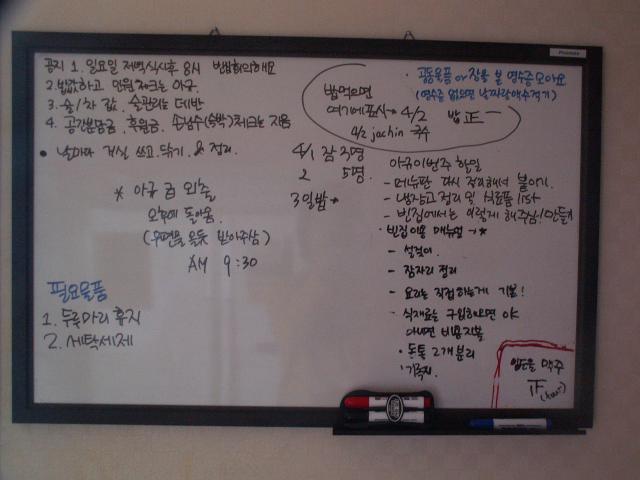 공지 1. 일요일 저녁식사후 8시 빈집회의해요
2. 밥값하고 인원체크는 아규.
3. 술/차 값, 술관리는 데반
4. 공간분담금, 후원금, 손님수(숙박)체크는 지음
• 날마다 거실 쓰고, 닦기, & 정리.
* 아규 금 외출
오후에 돌아옴.
(우편물 오면 받아주삼)
AM 9:30
필요물품
1. 두루마리 휴지
2. 세탁세제
• 공동물품 or 장을 본 영수증모아요
(영수증 없으면 날짜랑 액수적기)
밥먹으면
여기에표시→ 4/2 밥 正一
4/2 jachin 국수
4/1 잠 3명
2 5명.
3일밤→
아규이번주 한일
- 메뉴판 다시 정리해서 붙이기.
- 냉장고정리 및 식료품 list
- 빈집에서는 이렇게 해주삼!만들기
• 빈집이용 매뉴얼 →*
- 설겆이.
- 잠자리 정리
- 요리는 직접하는게 기본!
- 식재료는 구입해오면 OK
아니면 비용지불
• 돈통 2개분리
맥주
正